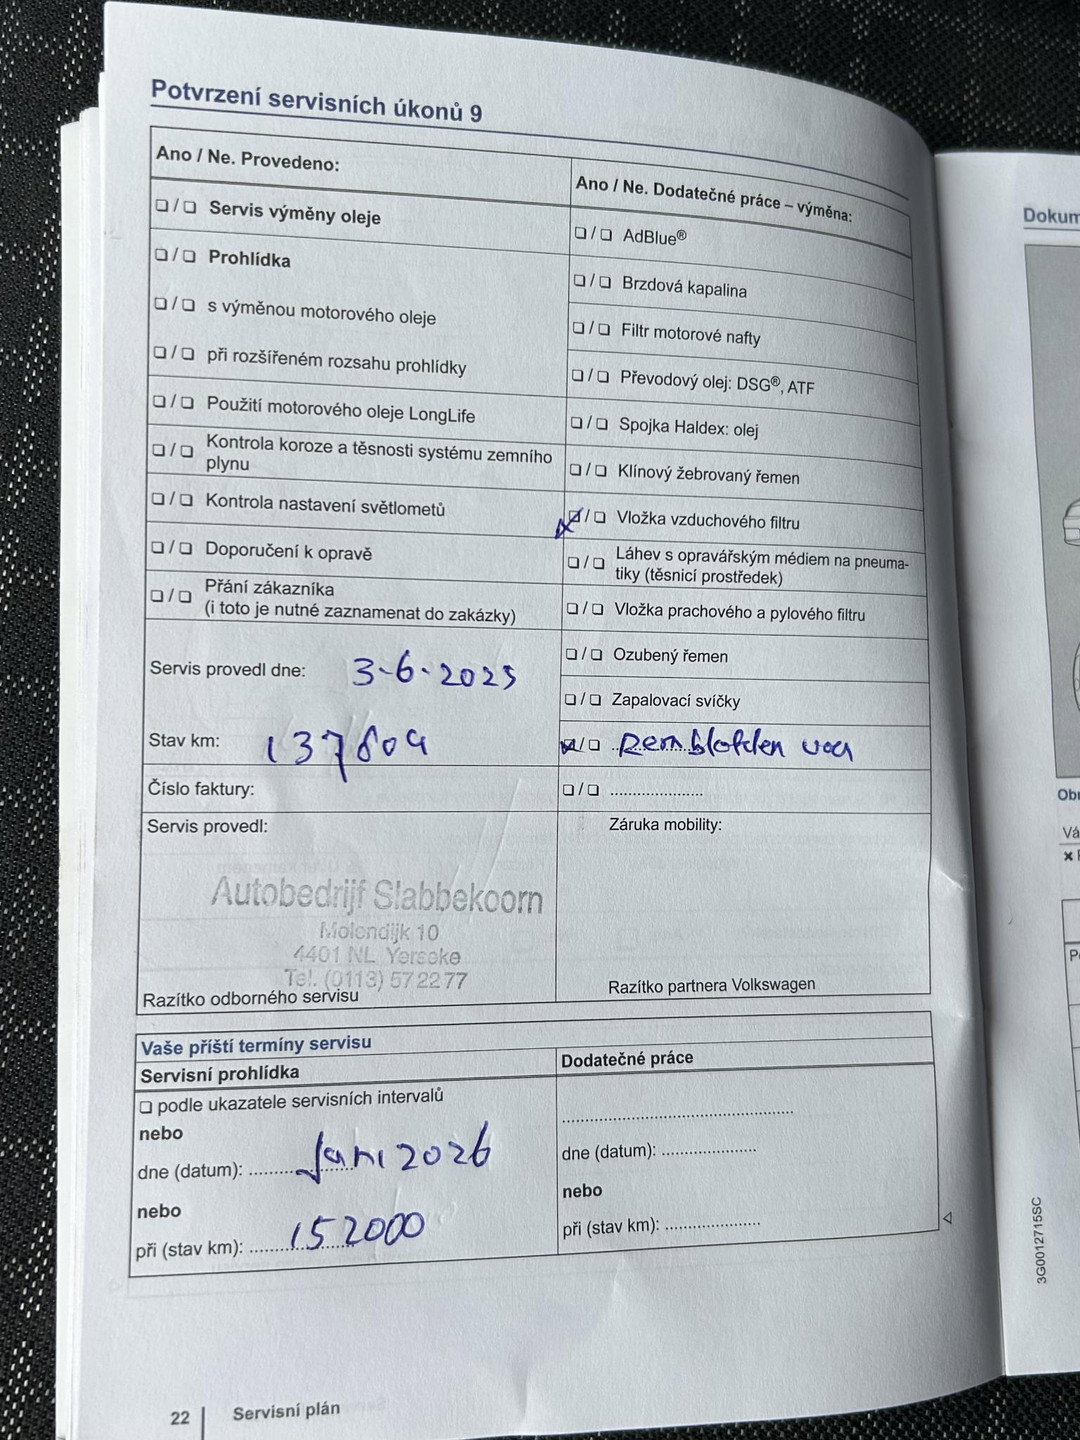 Potvrzení servisních úkonů 9
Ano / Ne. Provedeno:
❏ / ❏ Servis výměny oleje
❏ / ❏ Prohlídka
❏ / ❏ s výměnou motorového oleje
❏ / ❏ při rozšířeném rozsahu prohlídky
❏ / ❏ Použití motorového oleje LongLife
❏ / ❏ Kontrola koroze a těsnosti systému zemního
plynu
❏ / ❏ Kontrola nastavení světlometů
❏ / ❏ Doporučení k opravě
❏ / ❏ Přání zákazníka
(i toto je nutné zaznamenat do zakázky)
Servis provedl dne: 3-6-2025
Stav km: 137804
Číslo faktury:
Servis provedl:
Autobedrijf Slabbekoorn
Molendijk 10
4401 NL Yerseke
Tel. (0113) 57 22 77
Razítko odborného servisu
Ano / Ne. Dodatečné práce – výměna:
❏ / ❏ AdBlue®
❏ / ❏ Brzdová kapalina
❏ / ❏ Filtr motorové nafty
❏ / ❏ Převodový olej: DSG®, ATF
❏ / ❏ Spojka Haldex: olej
❏ / ❏ Klínový žebrovaný řemen
❏ / ❏ Vložka vzduchového filtru
❏ / ❏ Láhev s opravářským médiem na pneuma-
tiky (těsnicí prostředek)
❏ / ❏ Vložka prachového a pylového filtru
❏ / ❏ Ozubený řemen
❏ / ❏ Zapalovací svíčky
❏ / ❏ Remblokken voor
❏ / ❏ ......................
Záruka mobility:
Razítko partnera Volkswagen
Vaše příští termíny servisu
Servisní prohlídka
❏ podle ukazatele servisních intervalů
nebo
dne (datum): Juni 2026
nebo
při (stav km): 152000
Dodatečné práce
......................................................
dne (datum): ......................
nebo
při (stav km): ......................
22 Servisní plán
Dokum
Obr
Vá
3G0012715SC